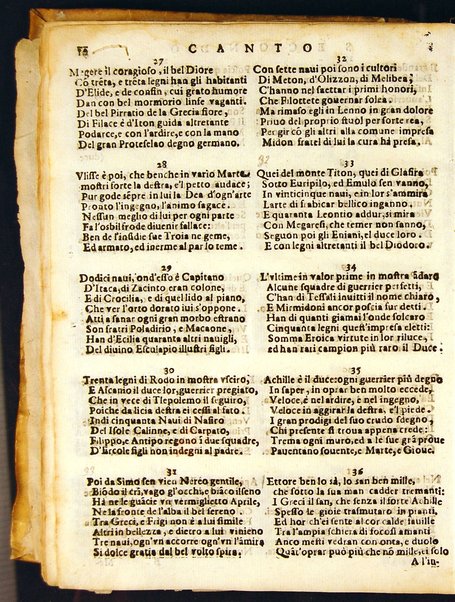 CANTO
27
Megere il coragioso, il bel Diore
Cō trēta, e trēta legni han gli habitanti
D'Elide, e de confin, cui grato humore
Dan con bel mormorio linfe vaganti.
Del bel Pirratio de la Grecia fiore,
Di Filace è d'Iton guida altretante
Podarce, e con l'ardire, e con la mano
Del gran Proteselao degno germano.
28
Vlisse è poi, che benche in vario Marte
mostri forte la destra, e'l petto audace;
Pur gode sēpre in lui la Dea d'ogn'arte
Pronto l'ingegno, l'animo sagace.
Nessun meglio di lui per ogni parte
Fa l'osbil frode divenir fallace:
Ben de l'insidie sue Troia ne geme,
Ed armato, ed inerme al par lo teme.
29
Dodici naui, ond'esso è Capitano
D'Itaca, di Zacinto eran colone,
E di Crocilia, e di quel lido al piano,
Che ver l'orto dorato iui s'oppone.
Atti a sanar ogni gran morbo estrano
Son fratri Poladirio, e Macaone,
Han d'Ecilia quaranta altri nauigli,
Del diuino Esculapio illustri figli.
30
Trenta legni di Rodo in mostra vsciro,
E Ascanio il duce lor, guerrier pregiato,
Che in vece di Tlepolemo il seguiro,
Poiche da licia destra ei cessi al fato.
Indi cinquanta Naui di Nasiro
Del'Isole Calinne, e di Carpato,
Filippo, e Antipo regono i due squadre,
D'arcole figli non indegni al padre.
31
Poi da Simo sen vien Nereo gentile,
Biōdo il crī, vago gl'occhi, e biāco il seno
Hà ne le guācie vn vermiglietto Aprile,
Ne la fronte de l'alba il bel sereno.
Tra Greci, e Frigi non è a lui simile
Altri in bellezza, e dietro a lui vinieno
Tre naui, ogn'vn accorre ogn'vn l'āmira
Sì dolce gratia dal bel volto spira.
32
Con sette naui poi sono i cultori
Di Meton, d'Olizzon, di Melibea;
C'hanno nel saettar i primi honori,
Che Filottete gouernar solea.
Ma rimaso egli in Lenno in gran dolore
Priuo del proprio stuol per sorte rea,
Per gir cō gli altri alla comune impresa
Midon fratel di lui la cura hà presa.
33
Quei del monte Titon, quei di Glafira
Sotto Euripilo, ed Emulo sen vanno,
In vinticinque naui, e in lor s'ammira
L'arte di fabricar bellico inganno.
E quaranta Leontio addur, si mira
Con Megaresi, che temer non sanno,
Seguon poi gli Eniani, el duce loro,
E con legni altretanti il bel Diodoro.
34
L'vltime in valor prime in mostra ādaro
Alcune squadre di guerrier perfetti,
C'han di Tessali inuitti il nome chiaro,
E Mirmidoni ancor poscia fur detti.
Han di quanti giamai l'onde solcaro
Cinquanta legni quest'impresa eletti:
Somma Eroica virtute in lor riluce,
ed han rari campion più raro il Duce.
35
Achille è il duce: ogni guerrier più degno
In saper, in oprar ben molto eccede,
Veloce, e nel ardire, e nel ingegno,
Veloce in aggirar la destra, e'l piede.
I gran prodigi del suo crudo sdegno,
Chi presente si troua appena crede:
Trema ogni muro, ed a le sue grā proue
Pauentano souente, e Marte, e Gioue.
36
Ettore ben lo sà, lo san ben mille,
che sotto la sua man cadder tremanti:
I Greci il san, che senza il forte Achille
Spesso le gioie trasmutaro in pianti,
Ed hor ch'ei sente al cor calde fauille
Tra l'ampia schiera di focosi amanti
Anco mesti vedran con onta, e duolo
Quāt'oprar può più che nō mille, ei solo
A l'in-